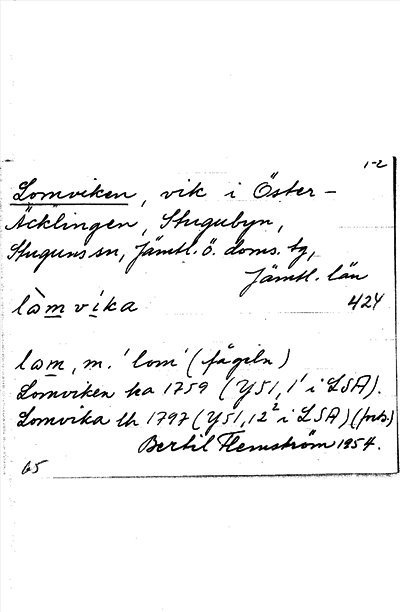 1-2
Lomviken, vik i Öster-
Äcklingen, Stugubyn,
Stuguns sn, Jämtl. ö. doms. tg,
Jämtl. län
lòm vika 424
lom, m. 'lom' (fågeln)
Lomviken ka 1759 (Y51, 1' i LSA).
Lomvika lh 1797 (Y51, 12² i LSA) (forts.)
Bertil Flemström 1954.
65